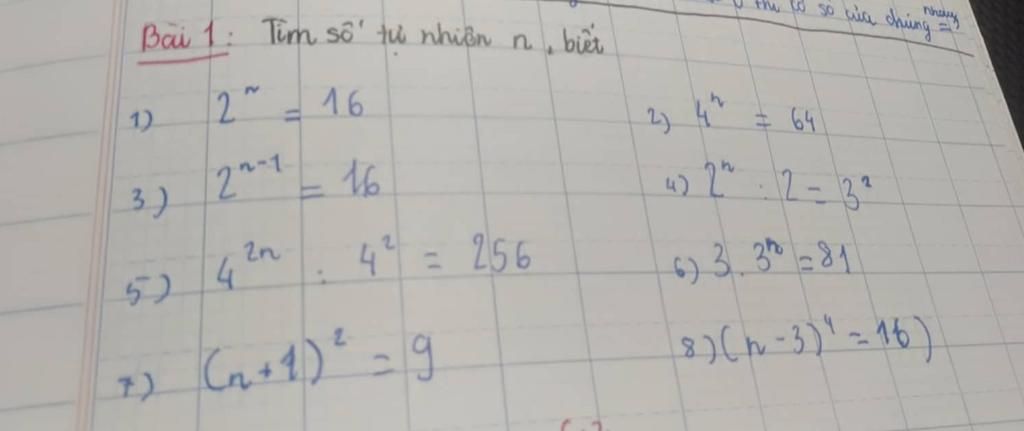 thì cơ số của chúng = nhau
Bài 1: Tìm số tự nhiên n, biết
1) 2ⁿ = 16 2) 4ⁿ = 64
3) 2ⁿ⁻¹ = 16 4) 2ⁿ : 2 = 3²
5) 4²ⁿ : 4² = 256 6) 3 . 3ⁿ = 81
7) (n+1)² = 9 8) (n-3)⁴ = 16)